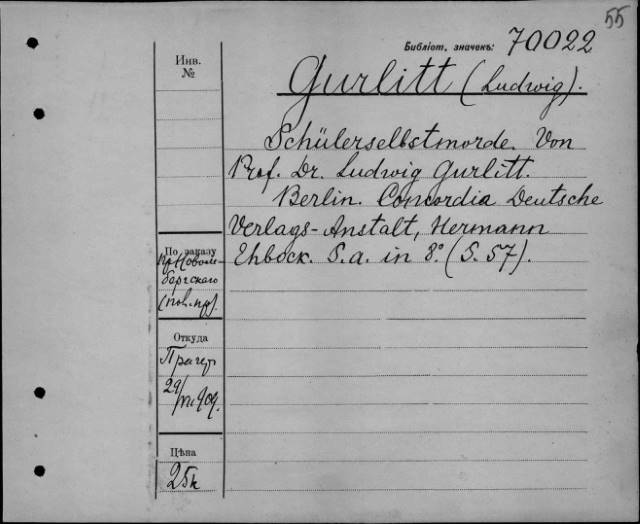 55
Библіот. значекъ: 70022
Инв.
№
Gurlitt (Ludwig).
Schülerselbstmorde. Von
Prof. Dr. Ludwig Gurlitt.
Berlin. Concordia Deutsche
Verlags-Anstalt, Hermann
Ehbock. S.a. in 8º. (S. 57).
По заказу
бергскаго
Откуда
Прагер
29/ 909.
Цѣна
25к